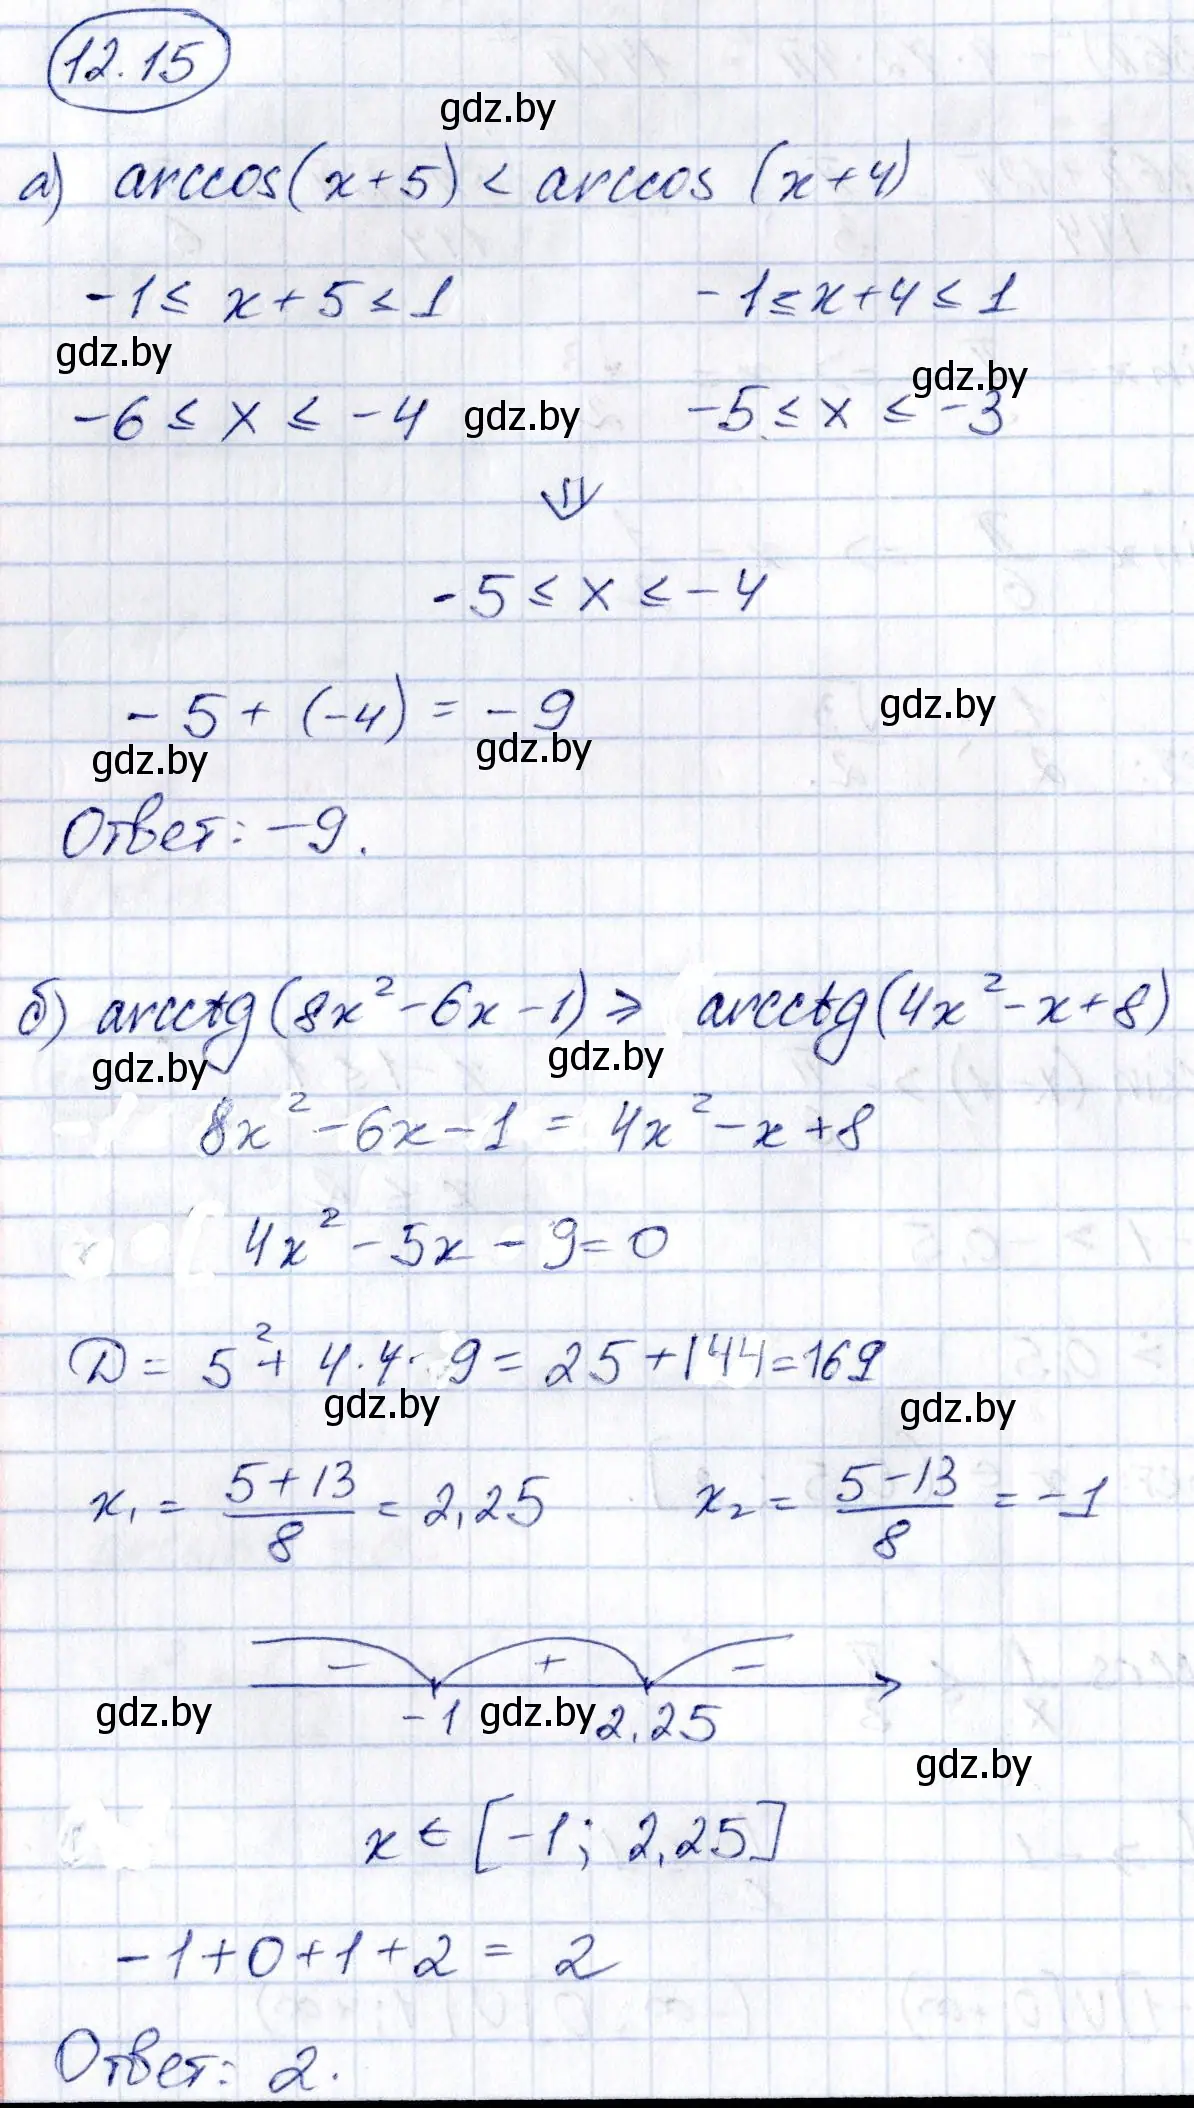 12.15
gdz.by
а) arccos(x+5) < arccos (x+4)
-1 ≤ x+5 ≤ 1 -1 ≤ x+4 ≤ 1
gdz.by
gdz.by
-6 ≤ x ≤ -4 gdz.by -5 ≤ x ≤ -3
⇓
-5 ≤ x ≤ -4
-5 + (-4) = -9
gdz.by
gdz.by gdz.by
Ответ: -9.
б) arcctg(8x² - 6x - 1) ⩾ arcctg(4x² - x + 8)
gdz.by gdz.by
8x² - 6x - 1 = 4x² - x + 8
4x² - 5x - 9 = 0
D = 5² + 4·4·9 = 25 + 144 = 169
gdz.by gdz.by
x₁ = (5+13)/8 = 2,25 x₂ = (5-13)/8 = -1
- + -
gdz.by -1 gdz.by 2,25
gdz.by
x ∈ [-1; 2,25]
-1+0+1+2 = 2
Ответ: 2.